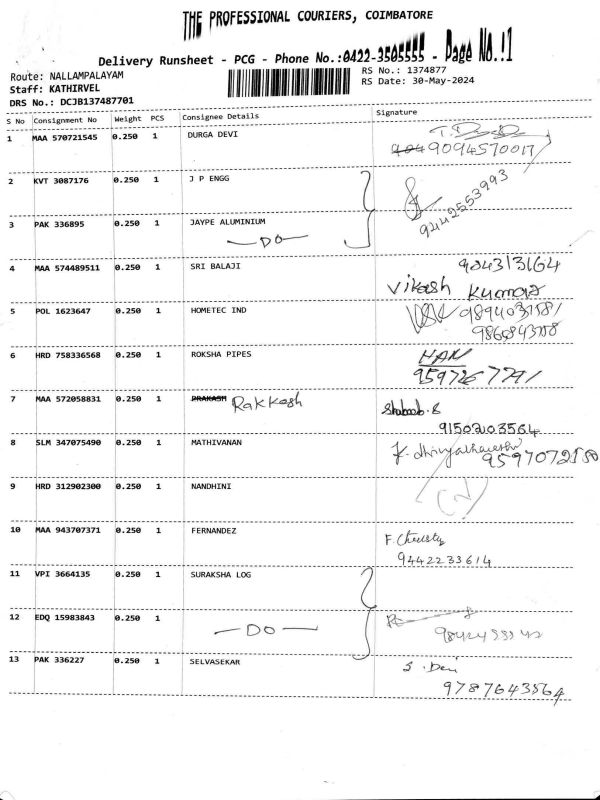 THE PROFESSIONAL COURIERS, COIMBATORE
Delivery Runsheet - PCG - Phone No.:0422-3505555 - Page No.:1
Route: NALLAMPALAYAM
RS No.: 1374877
Staff: KATHIRVEL
RS Date: 30-May-2024
DRS No.: DCJB137487701
S No Consignment No Weight PCS Consignee Details Signature
1 MAA 570721545 0.250 1 DURGA DEVI
9094570017
2 KVT 3087176 0.250 1 J P ENGG
9442553993
3 PAK 336895 0.250 1 JAYPE ALUMINIUM
— DO —
4 MAA 574489511 0.250 1 SRI BALAJI 904313164
Vikash Kumar
5 POL 1623647 0.250 1 HOMETEC IND
6 HRD 758336568 0.250 1 ROKSHA PIPES
7 MAA 572058831 0.250 1 PRAKASH Rakkesh
9150203564
8 SLM 347075490 0.250 1 MATHIVANAN
9 HRD 312902300 0.250 1 NANDHINI
10 MAA 943707371 0.250 1 FERNANDEZ
9442233614
11 VPI 3664135 0.250 1 SURAKSHA LOG
12 EDQ 15983843 0.250 1
— DO —
13 PAK 336227 0.250 1 SELVASEKAR S. Devi
9787643564